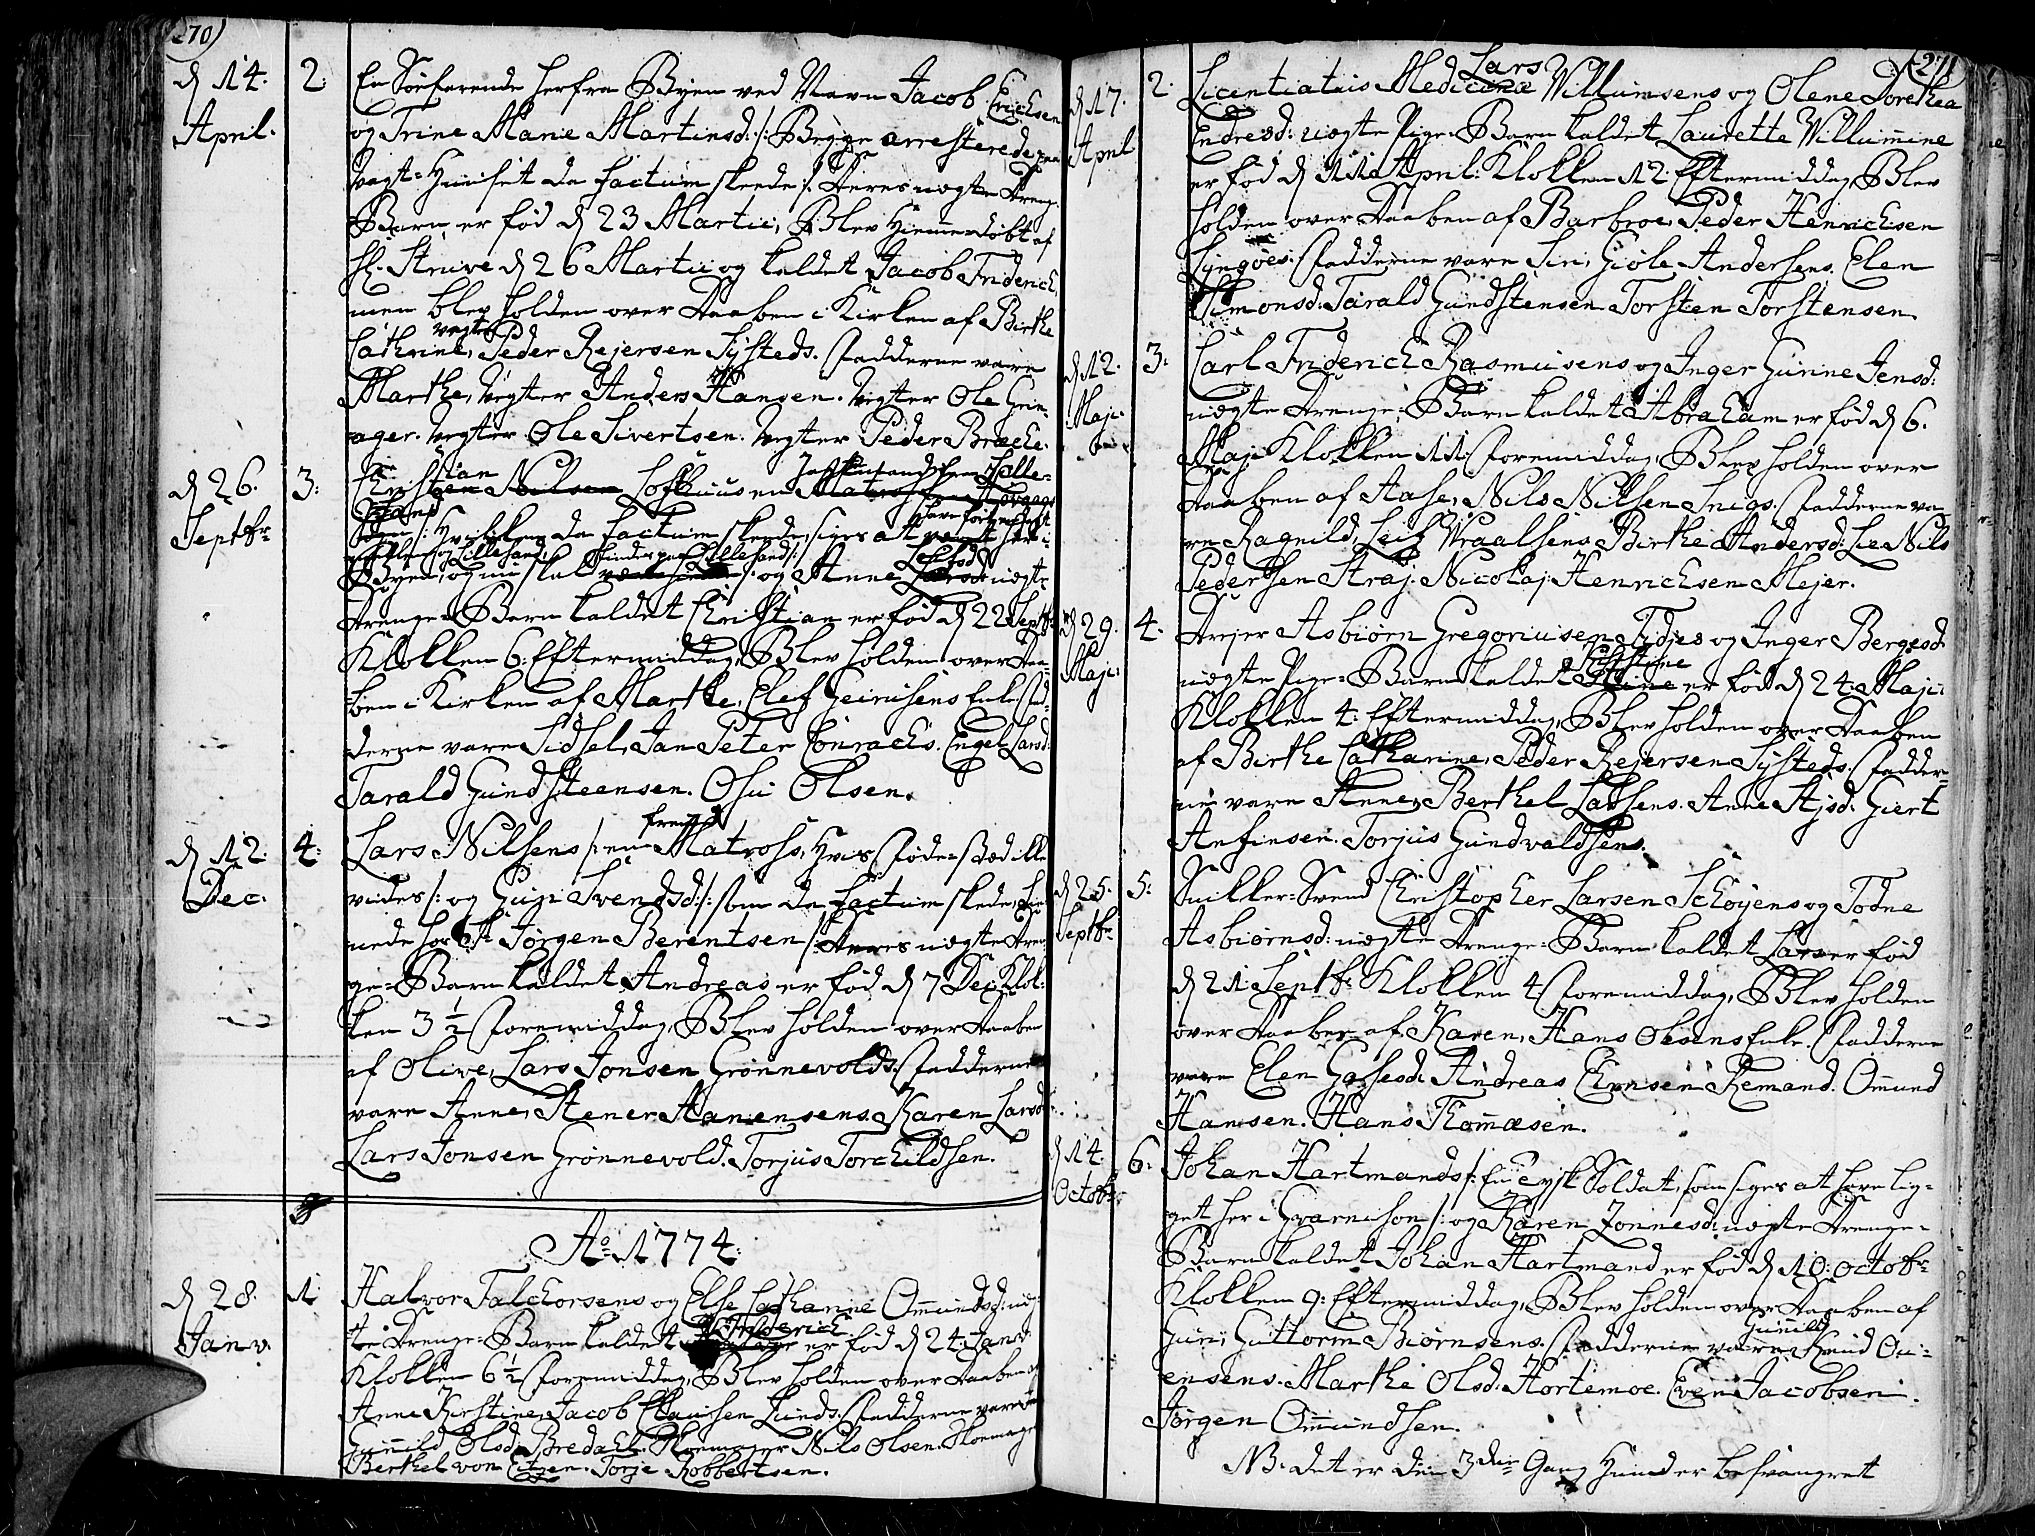 270)
d 14. April. 2. En Søefarende herfra Byen ved Navn Jacob Erichsen
og Trine Marie Martinsd: /: Begge arresterede paa
Vagt=Huuset da factum skeede :/ Deres uægte Drenge
Barn er fød d 23 Martii, Blev Hiemmedøbt af
Hr. Struve d 26 Martii og kaldet Jacob Friderich,
men blev holden over Daaben i Kirken af Birthe
Cathrine, Vegter Peder Rejersen Systeds. Fadderne vare
Marthe, Vegter Anders Hansen. Vegter Ole Grim-
ager. Vegter Ole Sivertsen. Vegter Peder Bræche.
d 26. Septbr 3: Christian Lofthuus en
da factum skeede, siges at
Byen, og nu skal :/ og Anne uægte
Drenge=Barn kaldet Christian er fød d 22 Septbr
Klokken 6. Eftermiddag, Blev holden over Daa-
ben i Kirken af Marthe, Elef Enke Fad-
derne vare Sidsel, Jan Peter Conrads. Engel Larsd:
Tarald Gundsteensen. Osu Olsen.
d 12. Dec. 4: Lars Nilsens /: en fremmed Matross, Hvis Føde=Sted ikke
vides :/ og Guri Svendsd: /: som da factum skede, tie-
nede hos Jørgen Berentsen :/ Deres uægte Dren-
ge=Barn kaldet Andreas er fød d 7 Dec. Klok-
ken 3 1/2 Foremiddag, Blev holden over Daaben
af Olive, Lars Jonsen Grønnevolds. Fadderne
vare Anne, Stener Hanensens. Karen Larsd.
Lars Jonsen Grønnevold. Torjus Torchildsen.
Ao 1774:
d 28. Janv. 1 Halvor Falchorsens og Else Catharine Omundsd: uæg-
te Drenge=Barn kaldet Friderich er fød d 24 Janv.
Klokken 6 1/2 Foremiddag, Blev holden over Daaben af
Anne Kirstine, Jacob Clausen Lunds. Fadderne vare
Gunnild Olsd. Bredahl. Skoemager Nils Olsen. Skoemager
Berthel von Eitzen. Torje Robbertsen.
(271
d 17. April 2. Licentiatus Medicinæ Lars Willumsens og Olene Dorethea
Endresd: uægte Pige=Barn kaldet Laurette Willumine
er fød d 11 April. Klokken 12 Eftermiddag, Blev
holden over Daaben af Barbroe, Peder Henrichsen
Lyngøes. Fadderne vare Siri, Giøle Andersens. Elen
Simonsd: Tarald Gundstensen. Torsten Torstensen.
d 12. Maji 3. Carl Friderich Rasmusens og Inger Gurine Jensd:
uægte Drenge=Barn kaldet Abraham er fød d 6.
Maji Klokken 11 Foremiddag, Blev holden over
Daaben af Aase, Nils Nilsen Snigs. Fadderne va-
re Ragnild, Leif Wraalsens. Birthe Andersd: Lie. Nils
Pedersen Straj. Nicolaj Henrichsen Mejer.
d 29. Maji. 4. Drejer Asbiørn Gregoriusen Tidjes og Inger Bergesd.
uægte Pige=Barn kaldet er fød d 24. Maji
Klokken 4. Eftermiddag, Blev holden over Daaben
af Birthe Catharine, Peder Rejersen Systeds. Fadder-
ne vare Anne, Berthel Lassens. Anne Giert
Anfinsen. Torjus Gundvaldsens.
d 25. Septbr 5: Snikker=Svend Christopher Larsen Schøyens og Todne
Asbiørnsd: uægte Drenge=Barn kaldet Lars er fød
d 21 Septbr Klokken 4 Foremiddag, Blev holden
over Daaben af Karen, Hans Olsens Enke. Fadderne
vare Elen Andreas Remand. Omund
Hansen. Hans Thommæsen.
d 14. Octobr. 6. Johan Hartmands /: En Soldat, som siges at have lig-
get her i Gvarnison :/ og Karen Zonnesd: uægte Drenge-
Barn kaldet Johan Hartmand er fød d 10. Octobr
Klokken 9. Eftermiddag, Blev holden over Daaben af
Guri, Guttorm Biørnsens. Fadderne vare Gunnild Knud Ou-
ensens. Marthe Olsd. Hortemoe. Even Jacobsen.
Jørgen Omundsen.
NB. det er den 3die Gang Hun er besvangret